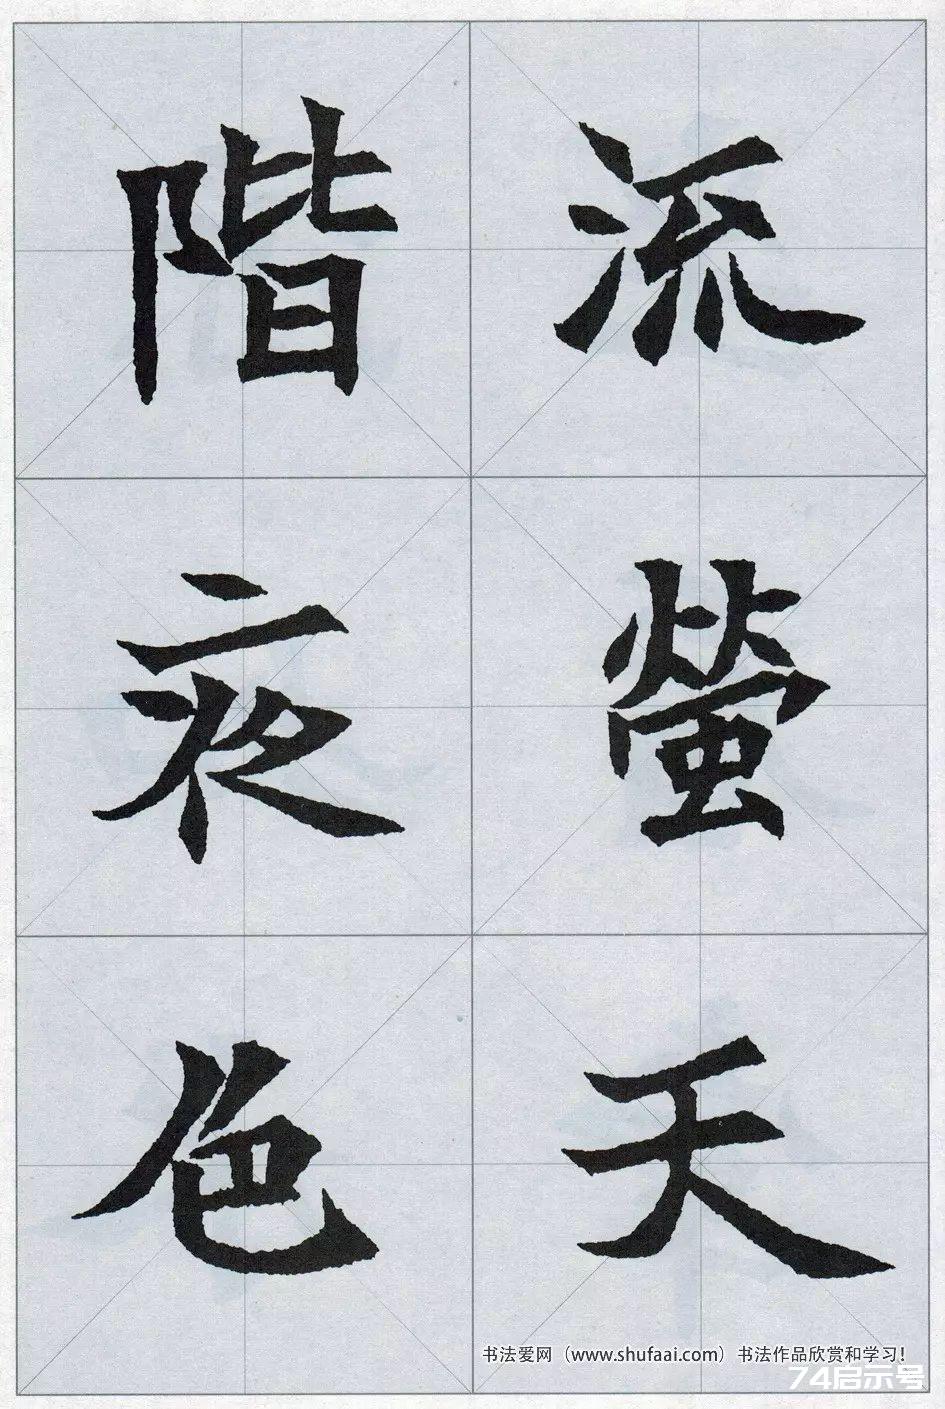 流螢天
階夜色
书法爱网（www.shufaai.com）书法作品欣赏和学习！
74启示号